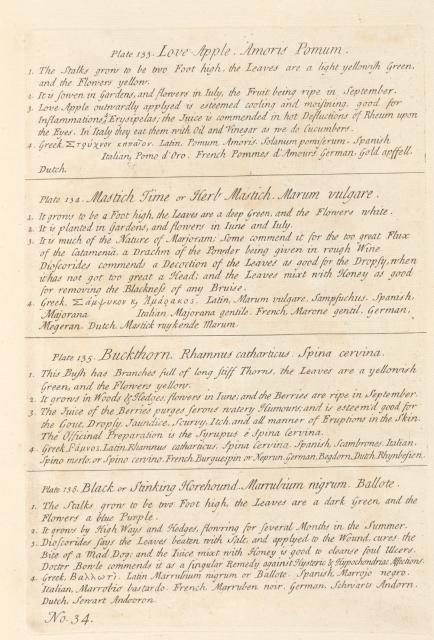 Plate 133. Love Apple. Amoris Pomum.
1. The Stalks grow to be two Foot high, the Leaves are a light yellowish Green,
and the Flowers yellow.
2. It is sowen in Gardens, and flowers in Iuly, the Fruit being ripe in September.
3. Love Apple outwardly applyed is esteemed cooling and moystning, good for
Inflammations, & Erysipelas; the Juice is commended in hot Defluctions of Rheum upon
the Eyes. In Italy they eat them with Oil and Vinegar as we do Cucumbers.
4. Greek, Στρύχνον κηπαῖον. Latin, Pomum Amoris, Solanum pomiferum. Spanish
Italian, Pomo d'Oro. French Pommes d'Amours German, Gold apffell.
Dutch.
Plate 134. Mastich Time or Herb Mastich. Marum vulgare.
1. It grows to be a Foot high, the Leaves are a deep Green, and the Flowers white.
2. It is planted in Gardens, and flowers in Iune and Iuly.
3. It is much of the Nature of Marjoram; Some commend it for the too great Flux
of the Catamenia, a Drachm of the Powder being given in rough Wine.
Dioscorides commends a Decoction of the Leaves as good for the Dropsy, when
it has not got too great a Head; and the Leaves mixt with Honey as good
for removing the Blackness of any Bruise.
4. Greek, Σάμψυχον κ Αμάρακος. Latin, Marum vulgare, Sampsuchus. Spanish,
Majorana Italian, Majorana gentile. French, Marone gentil. German,
Megeran. Dutch. Mastick ruykende Marum.
Plate 135. Buckthorn. Rhamnus catharticus. Spina cervina.
1. This Bush has Branches full of long stiff Thorns, the Leaves are a yellowish
Green, and the Flowers yellow.
2. It grows in Woods & Hedges, flowers in Iune; and the Berries are ripe in September.
3. The Juice of the Berries purges serous watery Humours, and is esteem'd good for
the Gout, Dropsy, Jaundice, Scurvy, Itch, and all manner of Eruptions in the Skin.
The Officinal Preparation is the Syrupus è Spina Cervina.
4. Greek, Ράμνος. Latin, Rhamnus catharticus, Spina Cervina. Spanish, Scambrones. Italian.
Spino merlo, or Spino cervino. French, Burguespin or Nerprun. German, Begdorn. Dutch, Rhynbesien.
Plate 136. Black or Stinking Horehound. Marrubium nigrum. Ballote.
1. The Stalks grow to be two Foot high, the Leaves are a dark Green and the
Flowers a blue Purple.
2. It grows by High Ways and Hedges, flowring for several Months in the Summer.
3. Dioscorides says the Leaves beaten with Salt, and applyed to the Wound, cures the
Bite of a Mad Dog; and the Iuice mixt with Honey is good to cleanse foul Ulcers.
Docter Bowle commends it as a singular Remedy against Hysteric & Hypochondriac Affections.
4. Greek, Βαλλωτὶ. Latin Marrubium nigrum or Ballote. Spanish, Marrojo negro.
Italian, Marrobio bastardo. French, Marruben noir. German, Schwarts Andorn.
Dutch, Sewart Andooron.
No. 34.